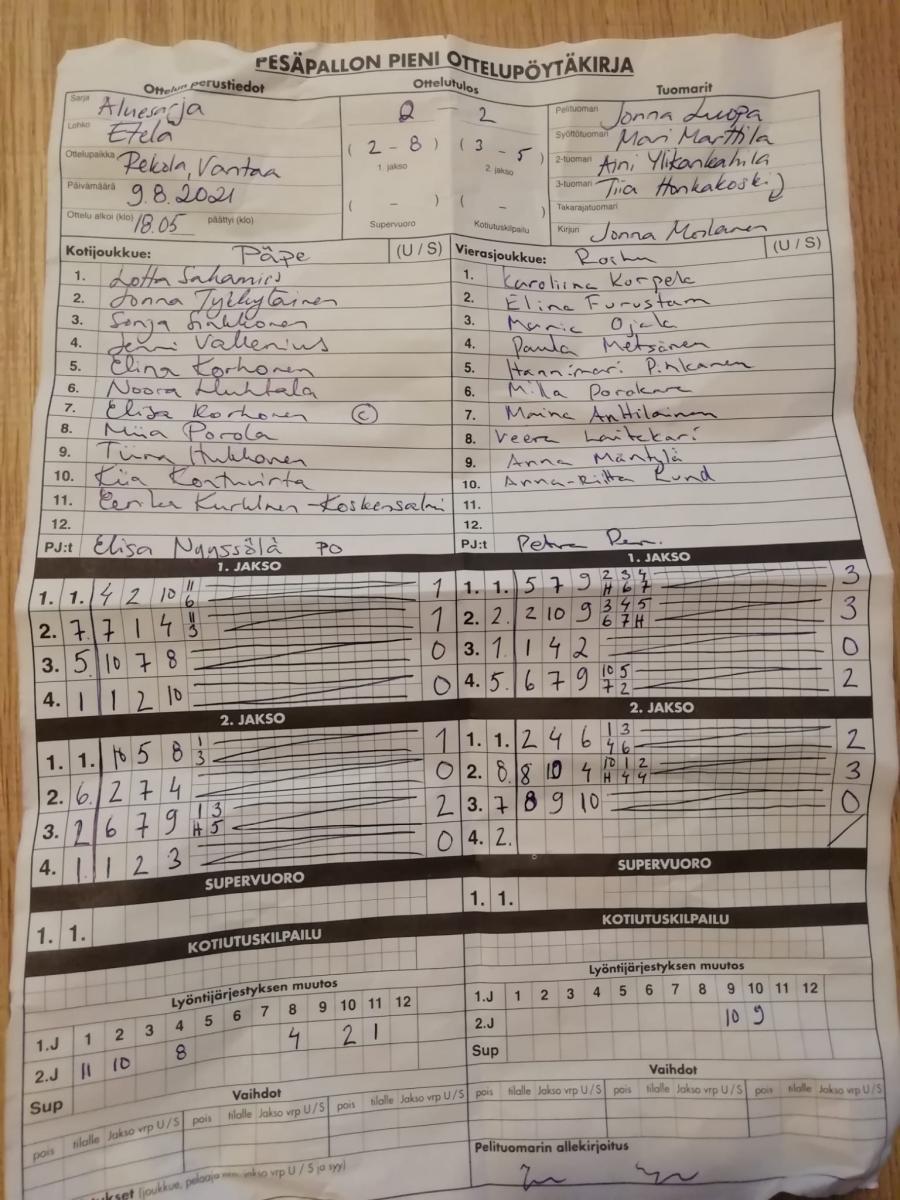 PESÄPALLON PIENI OTTELUPÖYTÄKIRJA
Ottelun perustiedot Ottelutulos Tuomarit
Sarja Aluesarja
Lohko Etelä
Ottelupaikka Rekola, Vantaa
Päivämäärä 9.8.2021
Ottelu alkoi (klo) 18.05 päättyi (klo)
2 - 2
(2 - 8) (3 - 5)
1. jakso 2. jakso
( - ) ( - )
Supervuoro Kotiutuskilpailu
Pelituomari Jonna Luopa
Syöttötuomari Mari Marttila
2-tuomari Aini Ylikankahila
3-tuomari Tiia Honkakoski
Takarajatuomari
Kirjuri Jonna Moilanen
Kotijoukkue: Päpe (U / S)
1. Lotta Sahamies
2. Jonna Tykkyläinen
3. Sonja Siakkonen
4. Jenni Vallenius
5. Elina Korhonen
6. Noora Huhtala
7. Elisa Korhonen (C)
8. Miia Porola
9. Tiina Hukkonen
10. Kiia Kontuvirta
11. Eerika Kurkinen-Koskensalmi
12.
PJ:t Elisa Nyyssölä PO
Vierasjoukkue: Roihu (U / S)
1. Karoliina Korpela
2. Elina Furustam
3. Maria Ojala
4. Paula Metsänen
5. Hannimari Pihkanen
6. Milla Porokara
7. Maina Anttilainen
8. Veera Laitekari
9. Anna Mäntylä
10. Anna-Riitta Lund
11.
12.
PJ:t Petra
1. JAKSO
1. 1. 4 2 10 11 6 1
2. 7. 7 1 4 11 3 1
3. 5. 10 7 8 0
4. 1 1 2 10 0
1. JAKSO
1. 1. 5 7 9 2 3 4 H 6 7 3
2. 2. 2 10 9 3 4 5 6 7 H 3
3. 1. 1 4 2 0
4. 5. 6 7 9 10 5 7 2 2
2. JAKSO
1. 1. 10 5 8 1 3 1
2. 6. 2 7 4 0
3. 2 6 7 9 1 3 H 5 2
4. 1. 1 2 3 0
2. JAKSO
1. 1. 2 4 6 1 3 4 6 2
2. 8. 8 10 4 10 1 2 H 4 4 3
3. 7 8 9 10 0
4. 2.
SUPERVUORO
1. 1.
SUPERVUORO
1. 1.
KOTIUTUSKILPAILU
KOTIUTUSKILPAILU
Lyöntijärjestyksen muutos
1.J 1 2 3 4 5 6 7 8 9 10 11 12
2.J 11 10 8 4 2 1
Sup
Lyöntijärjestyksen muutos
1.J 1 2 3 4 5 6 7 8 9 10 11 12
2.J 10 9
Sup
Vaihdot
pois tilalle Jakso vrp U / S pois tilalle Jakso vrp U / S pois tilalle Jakso vrp U / S
Vaihdot
pois tilalle Jakso vrp U / S pois tilalle Jakso vrp U / S pois tilalle Jakso vrp U / S
Pelituomarin allekirjoitus
(joukkue, pelaaja jakso vrp U / S ja syy)